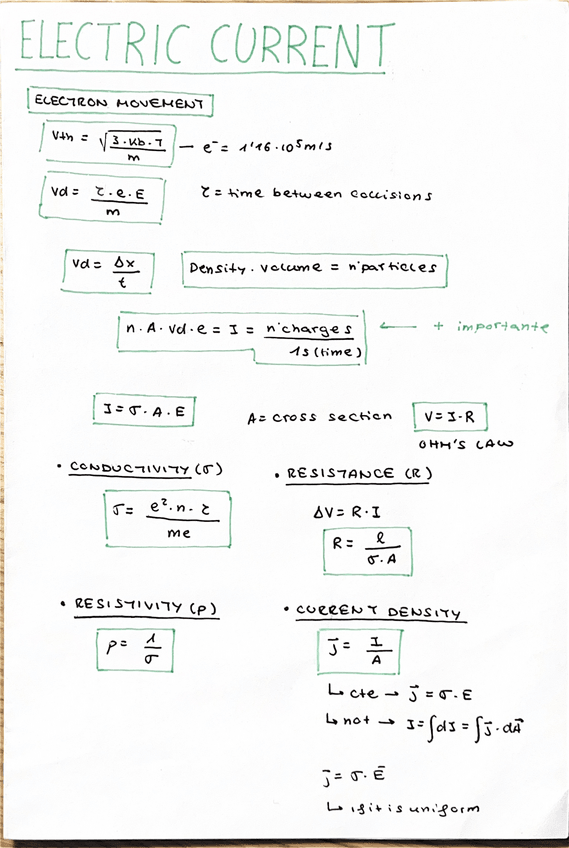 ELECTRIC CURRENT
ELECTRON MOVEMENT
Vth = √(3·kb·T / m) — e⁻ = 1'16·10⁵ m/s
Vd = τ·e·E / m
τ = time between collisions
Vd = Δx / t
Density·volume = nºparticles
n·A·Vd·e = I = nºcharges / 1s (time) ← + importante
I = σ·A·E
A = cross section
V = I·R
OHM'S LAW
• CONDUCTIVITY (σ)
σ = e²·n·τ / me
• RESISTANCE (R)
ΔV = R·I
R = l / σ·A
• RESISTIVITY (ρ)
ρ = 1 / σ
• CURRENT DENSITY
j⃗ = I / A
↳ cte → j⃗ = σ·E
↳ not → I = ∫dI = ∫j⃗·dA⃗
j⃗ = σ·E⃗
↳ if it is uniform